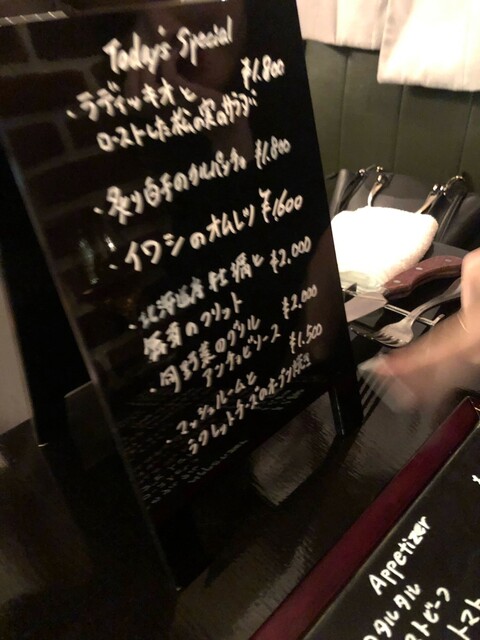 Today's Special
・ラディッキオと ¥1.800
ローストした松の実のサラダ
・炙り白子のカルパッチョ ¥1.800
・イワシのオムレツ ¥1600
・北海道産牡蠣と ¥2.000
のフリット ¥2.000
・のグリル
アンチョビソース ¥1.500
・マッシュルームと
ラクレットチーズのオーブン焼き
Appetizer
タルタル
トビーフ
トマト